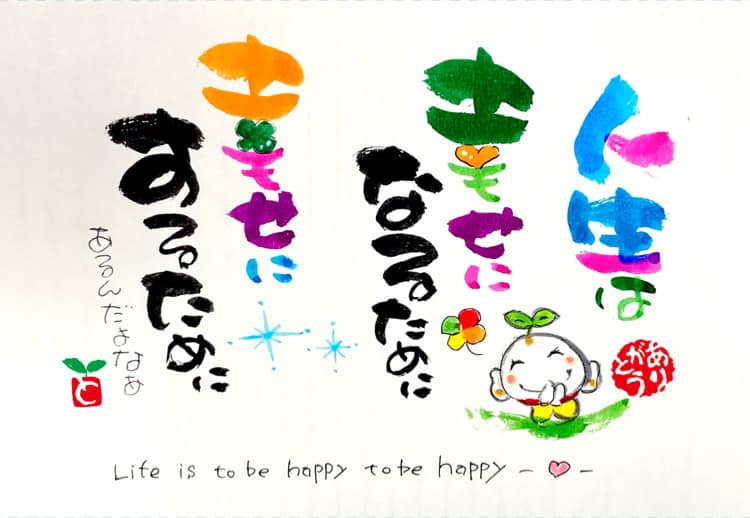 人生は
幸せに
なるために
幸せに
するために
あるんだよなぁ
ありがとう
と
Life is to be happy to be happy -♡-